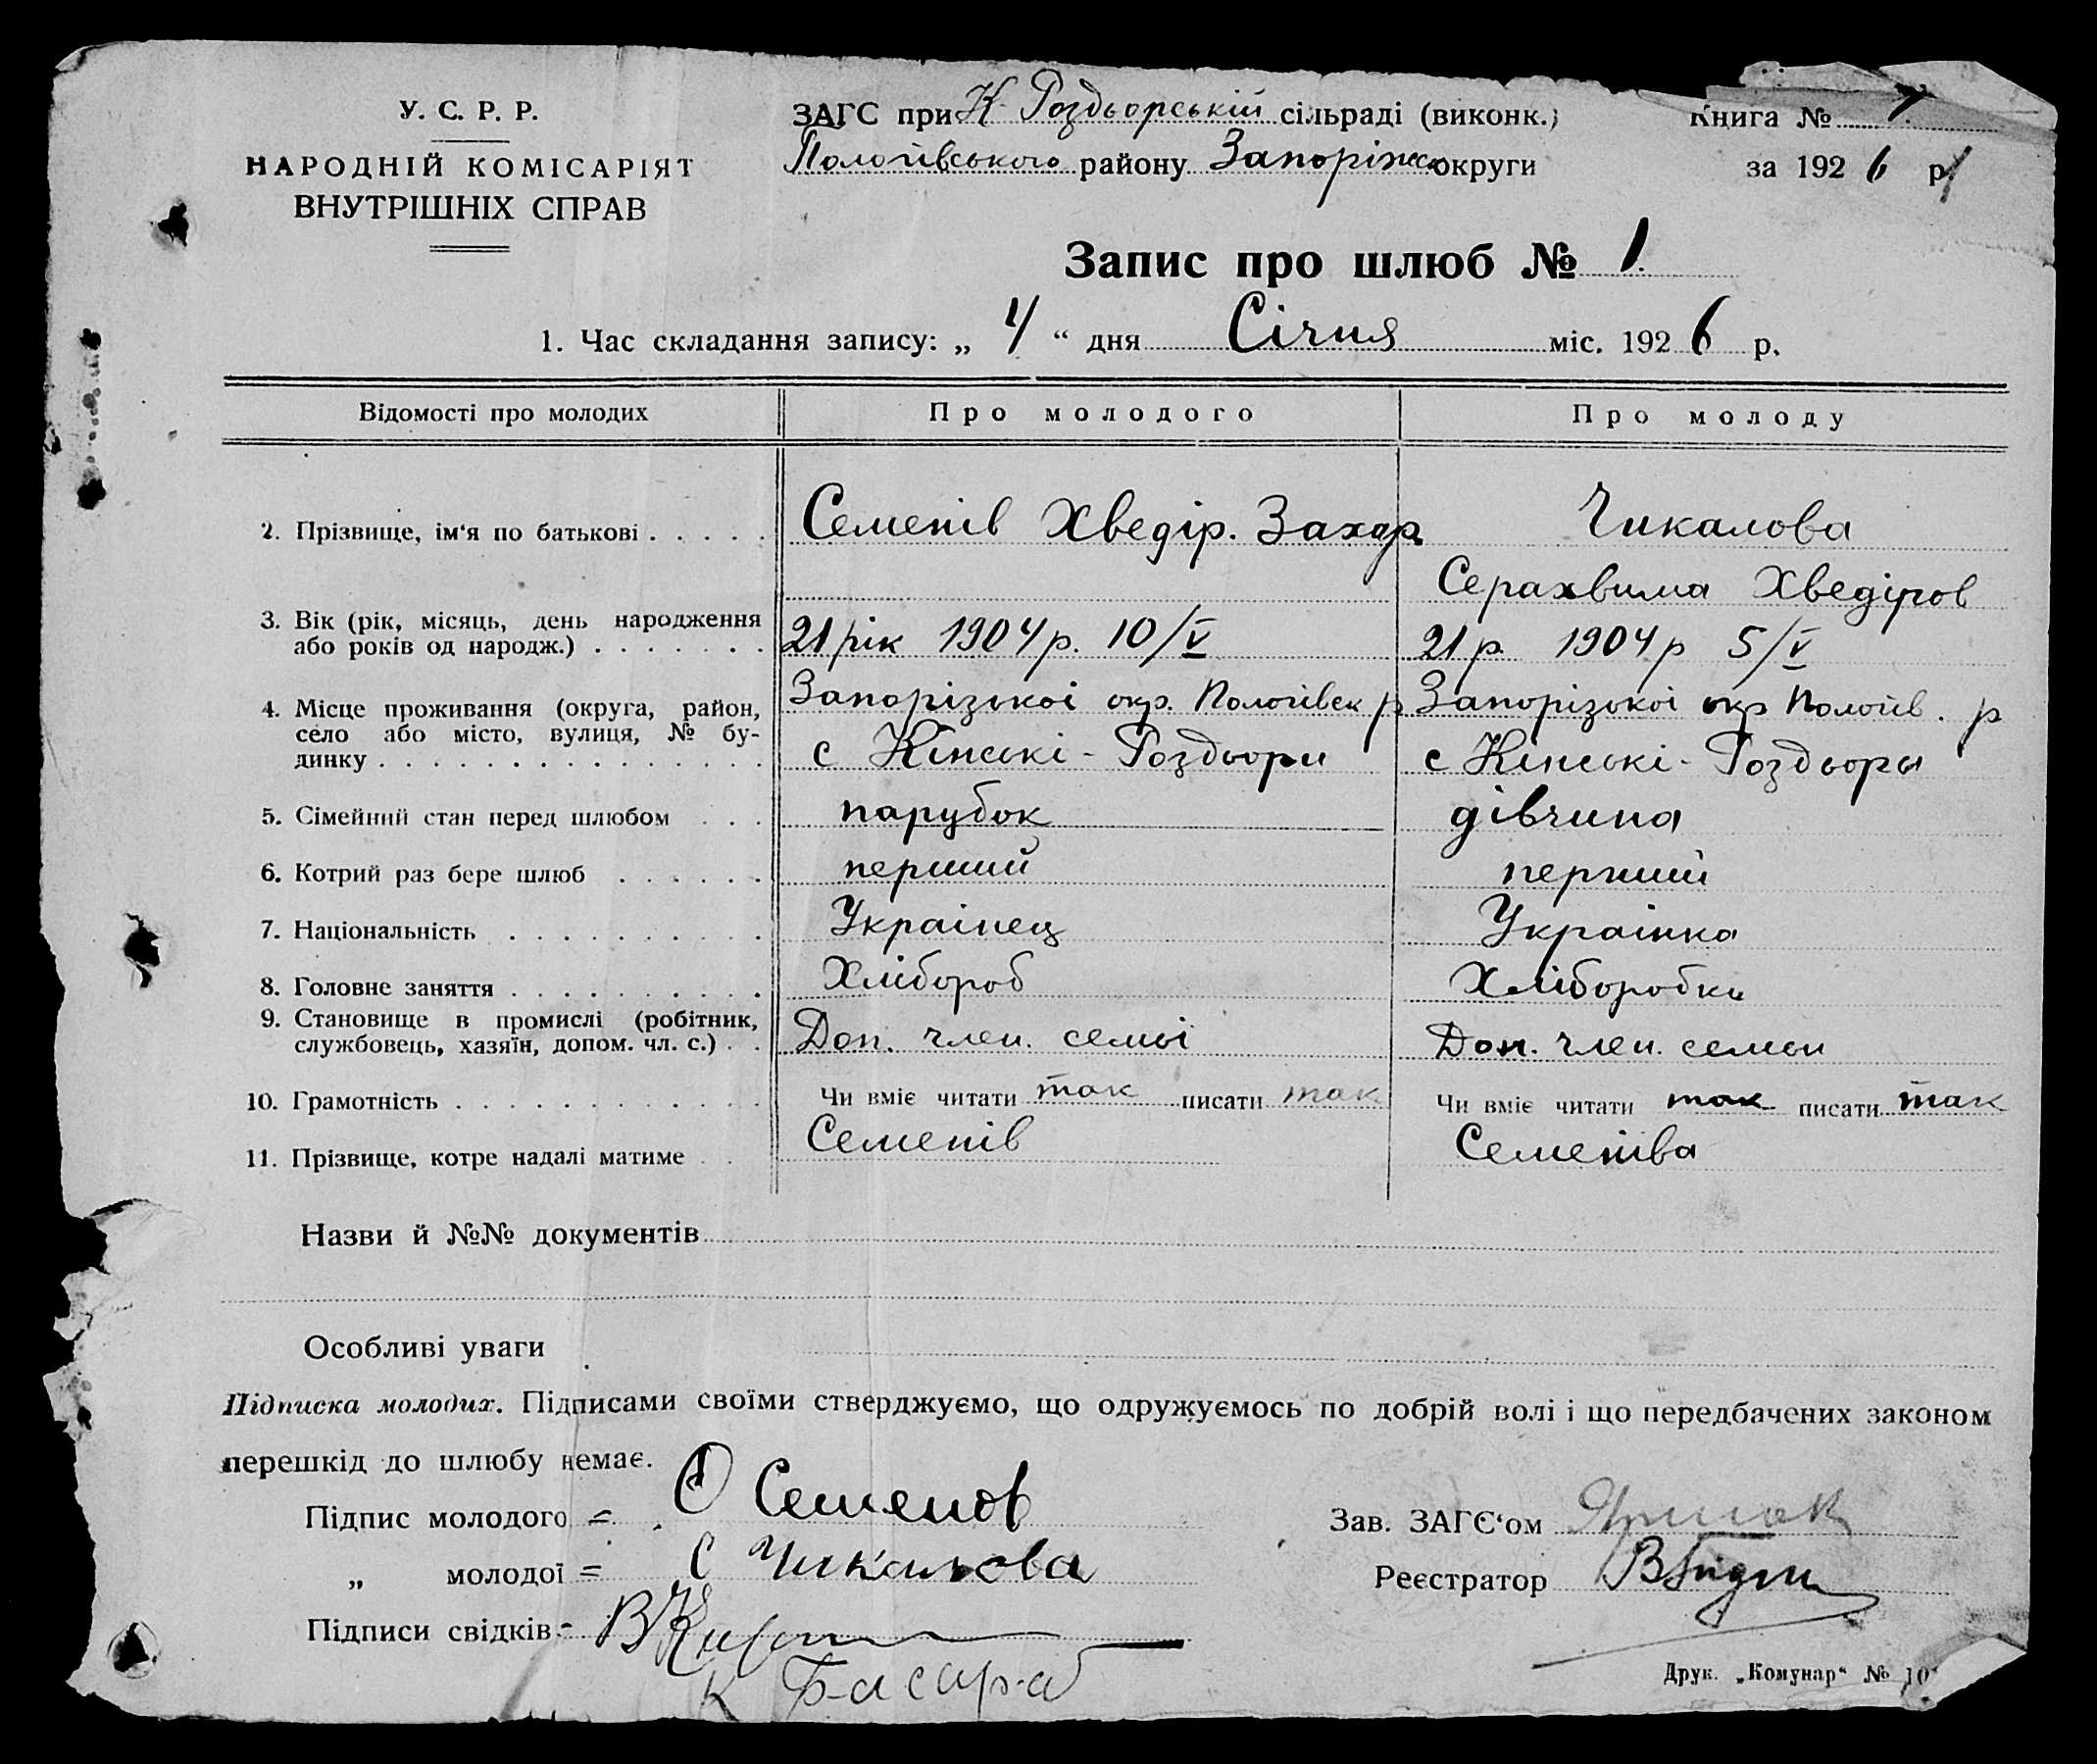 У. С. Р. Р.
НАРОДНІЙ КОМІСАРІЯТ
ВНУТРІШНІХ СПРАВ
ЗАГС при К-Роздьорській сільраді (виконк.)
Пологівського району Запоріжс округи
Книга № 1
за 1926 р.
Запис про шлюб № 1.
1. Час складання запису: „ 4 “ дня Січня міс. 1926 р.
Відомості про молодих Про молодого Про молоду
2. Прізвище, ім‘я по батькові . . . . . Семенів Хведір. Захар Чикалова
Серахвима Хведіров
3. Вік (рік, місяць, день народження
або років од народж.) . . . . . . . 21 рік 1904 р. 10/V 21 р. 1904 р 5/V
4. Місце проживання (округа, район,
село або місто, вулиця, № бу-
динку . . . . . . . . . . . . . . .
Запорізькоі окр. Пологівск р Запорізькоі окр Пологів. р
с Кінські-Роздьори с Кінські-Роздьоры
5. Сімейний стан перед шлюбом . . . парубок дівчина
6. Котрий раз бере шлюб . . . . . . перший перший
7. Національність . . . . . . . . . . Украінец Украінка
8. Головне заняття . . . . . . . . . . Хлібороб Хліборобка
9. Становище в промислі (робітник,
службовець, хазяїн, допом. чл. с.) . . Доп. член. семьї Доп. член. семьи
10. Грамотність . . . . . . . . . . . . Чи вміє читати так писати так Чи вміє читати так писати так
11. Прізвище, котре надалі матиме . . Семенів Семеніва
Назви й №№ документів
Особливі уваги
Підписка молодих. Підписами своїми стверджуємо, що одружуємось по добрій волі і що передбачених законом
перешкід до шлюбу немає.
Підпис молодого = Семенов
„ молодої = С Чикалова
Підписи свідків - В
К Басараб
Зав. ЗАГС‘ом
Реєстратор
Друк. „Комунар“ № 10